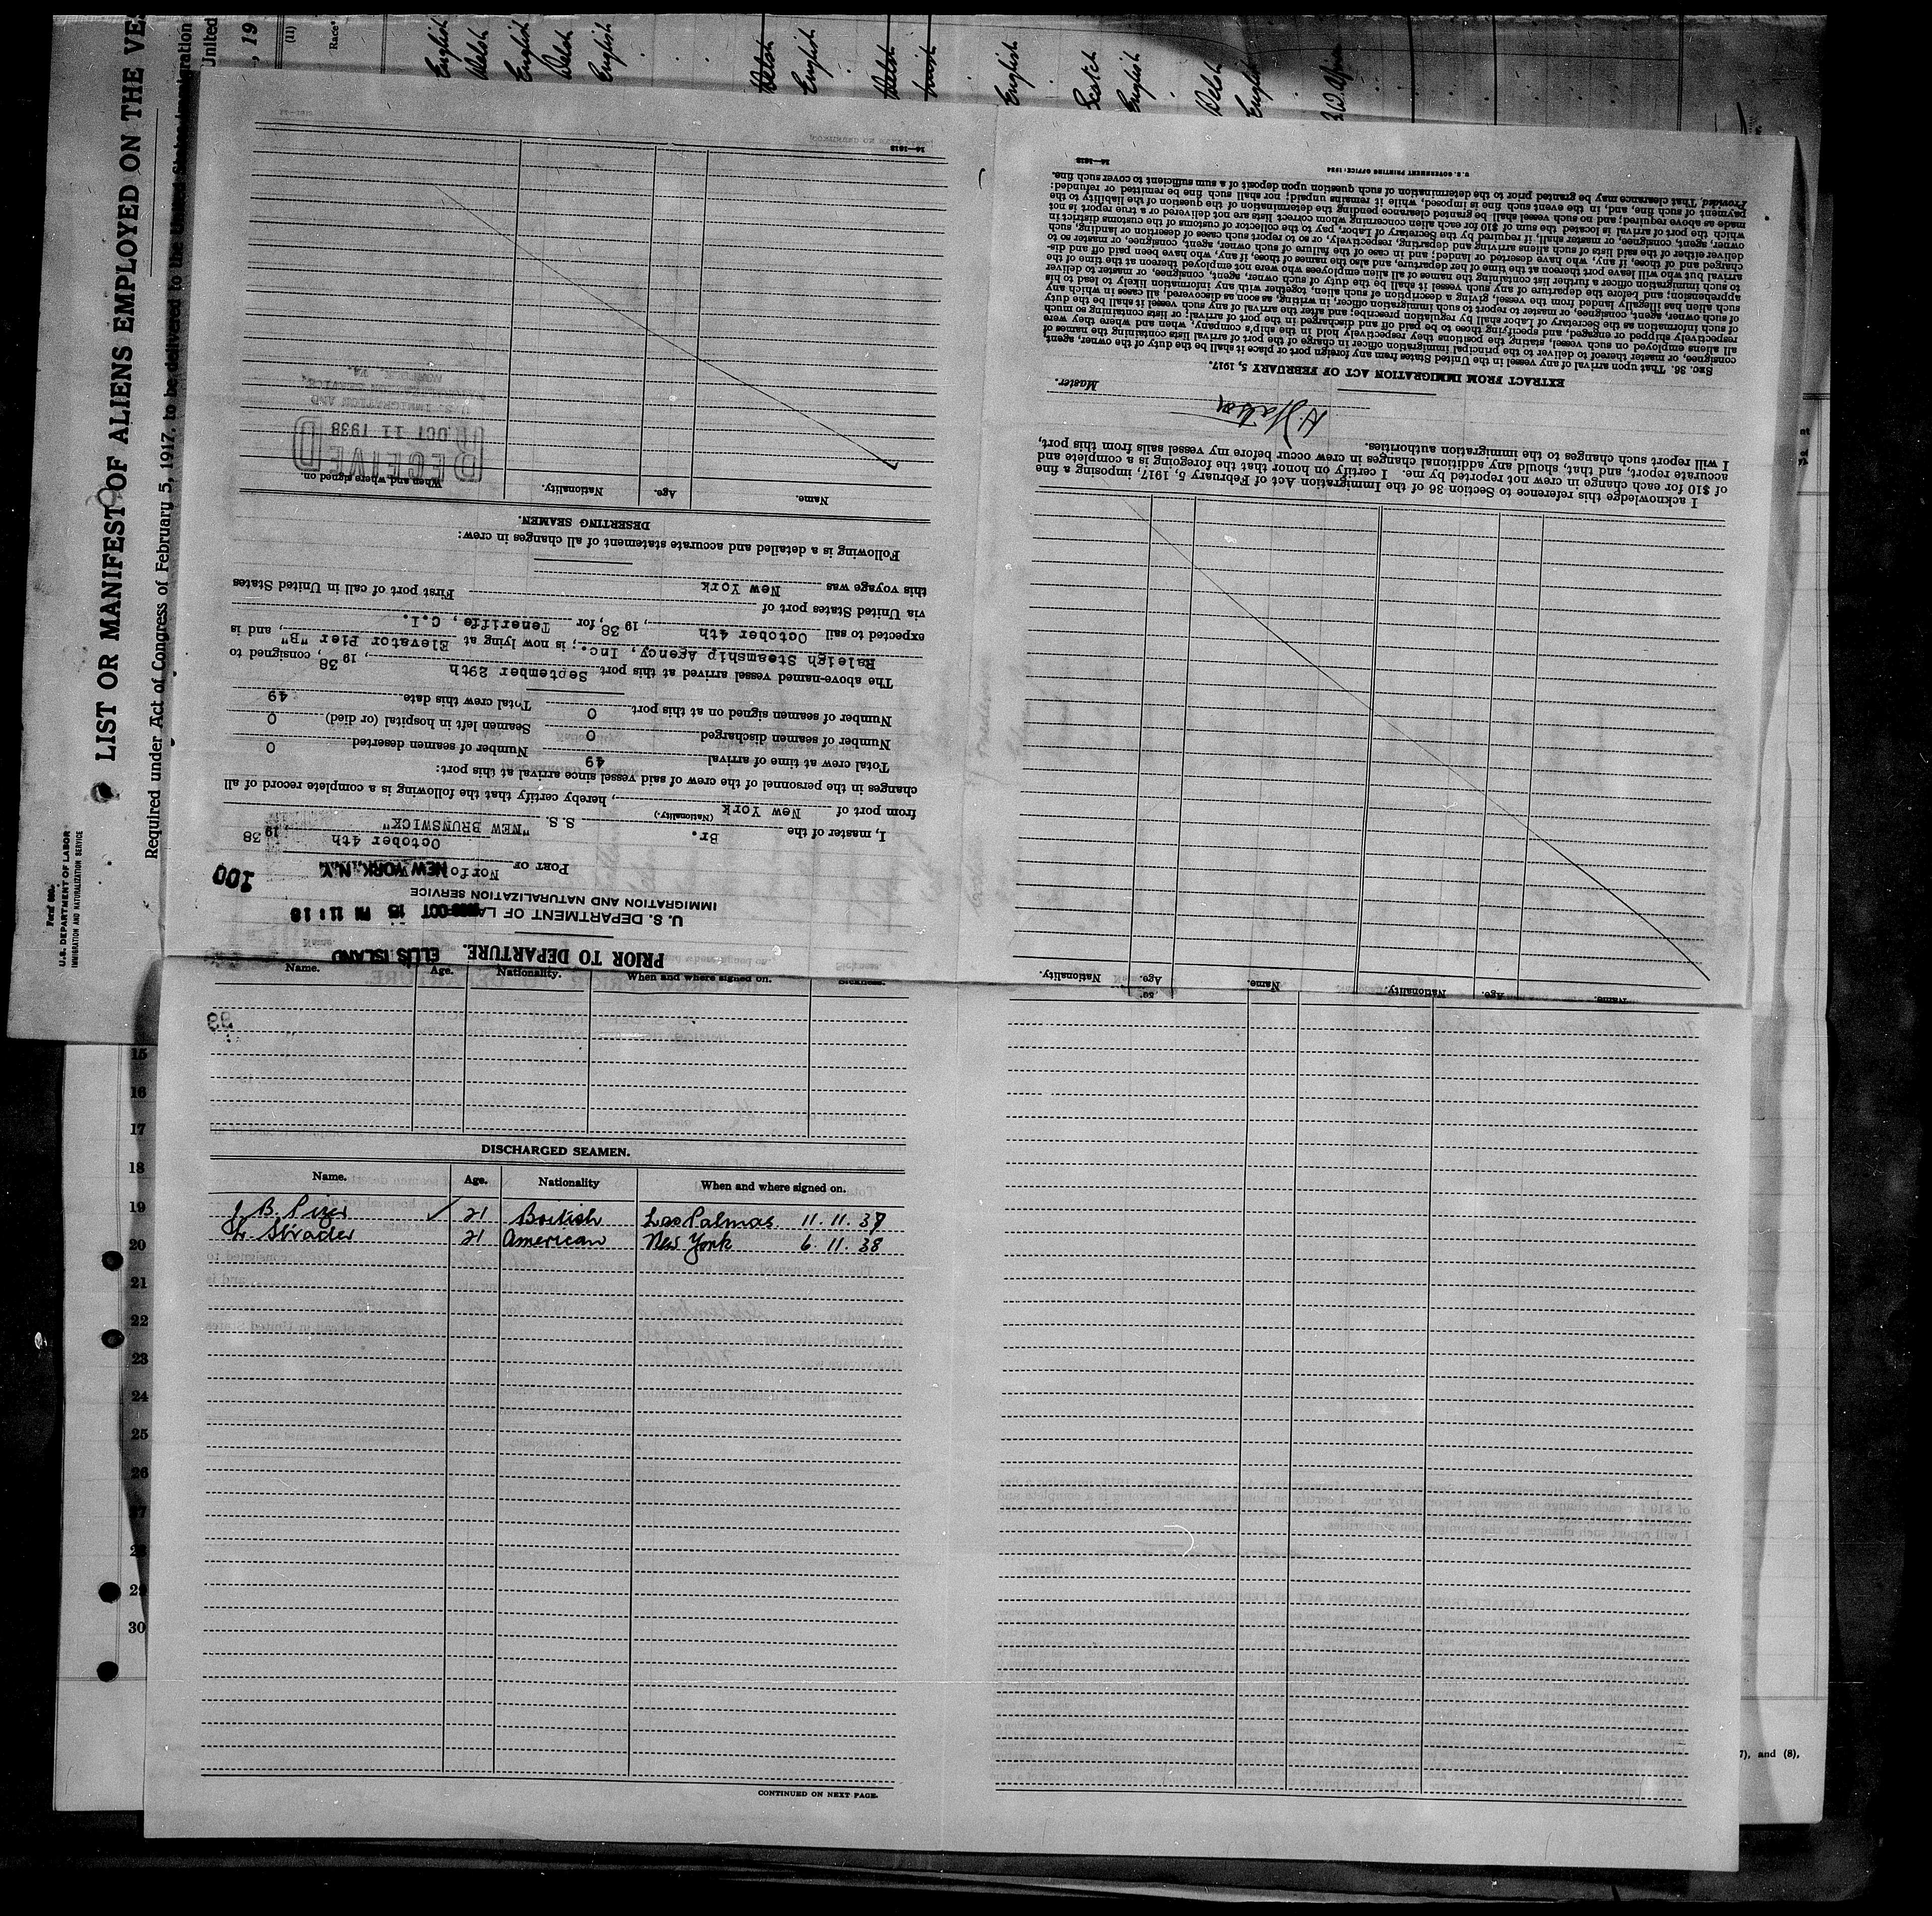 LIST OR MANIFEST OF ALIENS EMPLOYED ON THE VE
Required under Act of Congress of February 5, 1917, to be delivered to the United States Immigration
Form 680
U.S. DEPARTMENT OF LABOR
IMMIGRATION AND NATURALIZATION SERVICE
United
, 19
(11)
Race*
English
Welsh
English
Welsh
English
Welsh
English
Welsh
Irish
English
Scotch
English
Welsh
English
PRIOR TO DEPARTURE. ELLIS ISLAND
U. S. DEPARTMENT OF LA OCT 15 PM 11:18
IMMIGRATION AND NATURALIZATION SERVICE
100
PORT OF Norfo NEW YORK, N.Y.
October 4th, 1938
I, master of the Br. S.S. "NEW BRUNSWICK"
(Nationality.)
from port of New York, hereby certify that the following is a complete record of all
changes in the personnel of the crew of said vessel since arrival at this port:
Total crew at time of arrival 49 Number of seamen deserted 0
Number of seamen discharged 0 Seamen left in hospital (or died) 0
Number of seamen signed on at this port 0 Total crew this date 49
The above-named vessel arrived at this port September 29th, 1938, consigned to
Raleigh Steamship Agency, Inc.; is now lying at Elevator Pier "B", and is
expected to sail October 4th, 1938, for Teneriffe, C.I.
via United States port of First port of call in United States
this voyage was New York
Following is a detailed and accurate statement of all changes in crew:
DESERTING SEAMEN.
Name. Age. Nationality. When and where signed on.
RECEIVED
OCT 11 1938
U.S. IMMIGRATION AND
NATURALIZATION SERVICE,
NORFOLK, VA.
16—1618
Name. Age. Nationality. Name. Age. Nationality.
I acknowledge this reference to Section 36 of the Immigration Act of February 5, 1917, imposing a fine
of $10 for each change in crew not reported by me. I certify on honor that the foregoing is a complete and
accurate report, and that, should any additional changes in crew occur before my vessel sails from this port,
I will report such changes to the immigration authorities.
Master.
EXTRACT FROM IMMIGRATION ACT OF FEBRUARY 5, 1917.
SEC. 36. That upon arrival of any vessel in the United States from any foreign port or place it shall be the duty of the owner, agent,
consignee, or master thereof to deliver to the principal immigration officer in charge of the port of arrival lists containing the names of
all aliens employed on such vessel, stating the positions they respectively hold in the ship's company, when and where they were
respectively shipped or engaged, and specifying those to be paid off and discharged in the port of arrival; or lists containing so much
of such information as the Secretary of Labor shall by regulation prescribe; and after the arrival of any such vessel it shall be the duty
of such owner, agent, consignee, or master to report to such immigration officer, in writing, as soon as discovered, all cases in which any
such alien has illegally landed from the vessel, giving a description of such alien, together with any information likely to lead to his
apprehension; and before the departure of any such vessel it shall be the duty of such owner, agent, consignee, or master to deliver
to such immigration officer a further list containing the names of all alien employees who were not employed thereon at the time of the
arrival but who will leave port thereon at the time of her departure, and also the names of those, if any, who have been paid off and dis-
charged and of those, if any, who have deserted or landed; and in case of the failure of such owner, agent, consignee, or master so to
deliver either of the said lists of such aliens arriving and departing, respectively, or so to report such cases of desertion or landing, such
owner, agent, consignee, or master shall, if required by the Secretary of Labor, pay to the collector of customs of the customs district in
which the port of arrival is located the sum of $10 for each alien concerning whom correct lists are not delivered or a true report is not
made as above required; and no such vessel shall be granted clearance pending the determination of the question of the liability to the
payment of such fine, and, in the event such fine is imposed, while it remains unpaid; nor shall such fine be remitted or refunded:
Provided, That clearance may be granted prior to the determination of such question upon deposit of a sum sufficient to cover such fine.
U. S. GOVERNMENT PRINTING OFFICE: 1934
16—1618
Name. Age. Nationality. When and where signed on. Sickness.
99
DISCHARGED SEAMEN.
Name. Age. Nationality When and where signed on.
J. B. Pires 21 British Las Palmas 11. 11. 37
L. Strader 21 American New York 6. 11. 38
CONTINUED ON NEXT PAGE.
15
16
17
18
19
20
21
22
23
24
25
26
27
28
29
30
7), and (8),